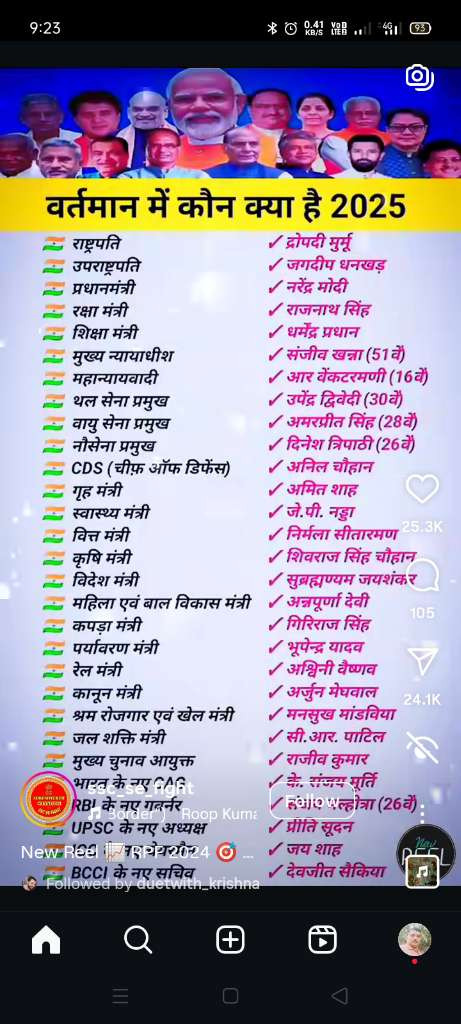 9:23
0.41 KB/S
4G
93
वर्तमान में कौन क्या है 2025
राष्ट्रपति ✓ द्रोपदी मुर्मू
उपराष्ट्रपति ✓ जगदीप धनखड़
प्रधानमंत्री ✓ नरेंद्र मोदी
रक्षा मंत्री ✓ राजनाथ सिंह
शिक्षा मंत्री ✓ धर्मेंद्र प्रधान
मुख्य न्यायाधीश ✓ संजीव खन्ना (51वें)
महान्यायवादी ✓ आर वेंकटरमणी (16वें)
थल सेना प्रमुख ✓ उपेंद्र द्विवेदी (30वें)
वायु सेना प्रमुख ✓ अमरप्रीत सिंह (28वें)
नौसेना प्रमुख ✓ दिनेश त्रिपाठी (26वें)
CDS (चीफ़ ऑफ डिफेंस) ✓ अनिल चौहान
गृह मंत्री ✓ अमित शाह
स्वास्थ्य मंत्री ✓ जे.पी. नड्डा
25.3K
वित्त मंत्री ✓ निर्मला सीतारमण
कृषि मंत्री ✓ शिवराज सिंह चौहान
विदेश मंत्री ✓ सुब्रह्मण्यम जयशंकर
महिला एवं बाल विकास मंत्री ✓ अन्नपूर्णा देवी
105
कपड़ा मंत्री ✓ गिरिराज सिंह
पर्यावरण मंत्री ✓ भूपेन्द्र यादव
रेल मंत्री ✓ अश्विनी वैष्णव
कानून मंत्री ✓ अर्जुन मेघवाल
24.1K
श्रम रोजगार एवं खेल मंत्री ✓ मनसुख मांडविया
जल शक्ति मंत्री ✓ सी.आर. पाटिल
मुख्य चुनाव आयुक्त ✓ राजीव कुमार
भारत के नए CAG ✓ के. संजय मूर्ति
ssc_se_fight
Follow
RBI के नए गवर्नर (26वें)
Border Roop Kuma
UPSC के नए अध्यक्ष ✓ प्रीति सूदन
New Reel RPF 2024 ...
✓ जय शाह
BCCI के नए सचिव ✓ देवजीत सैकिया
Followed by duetwith_krishna